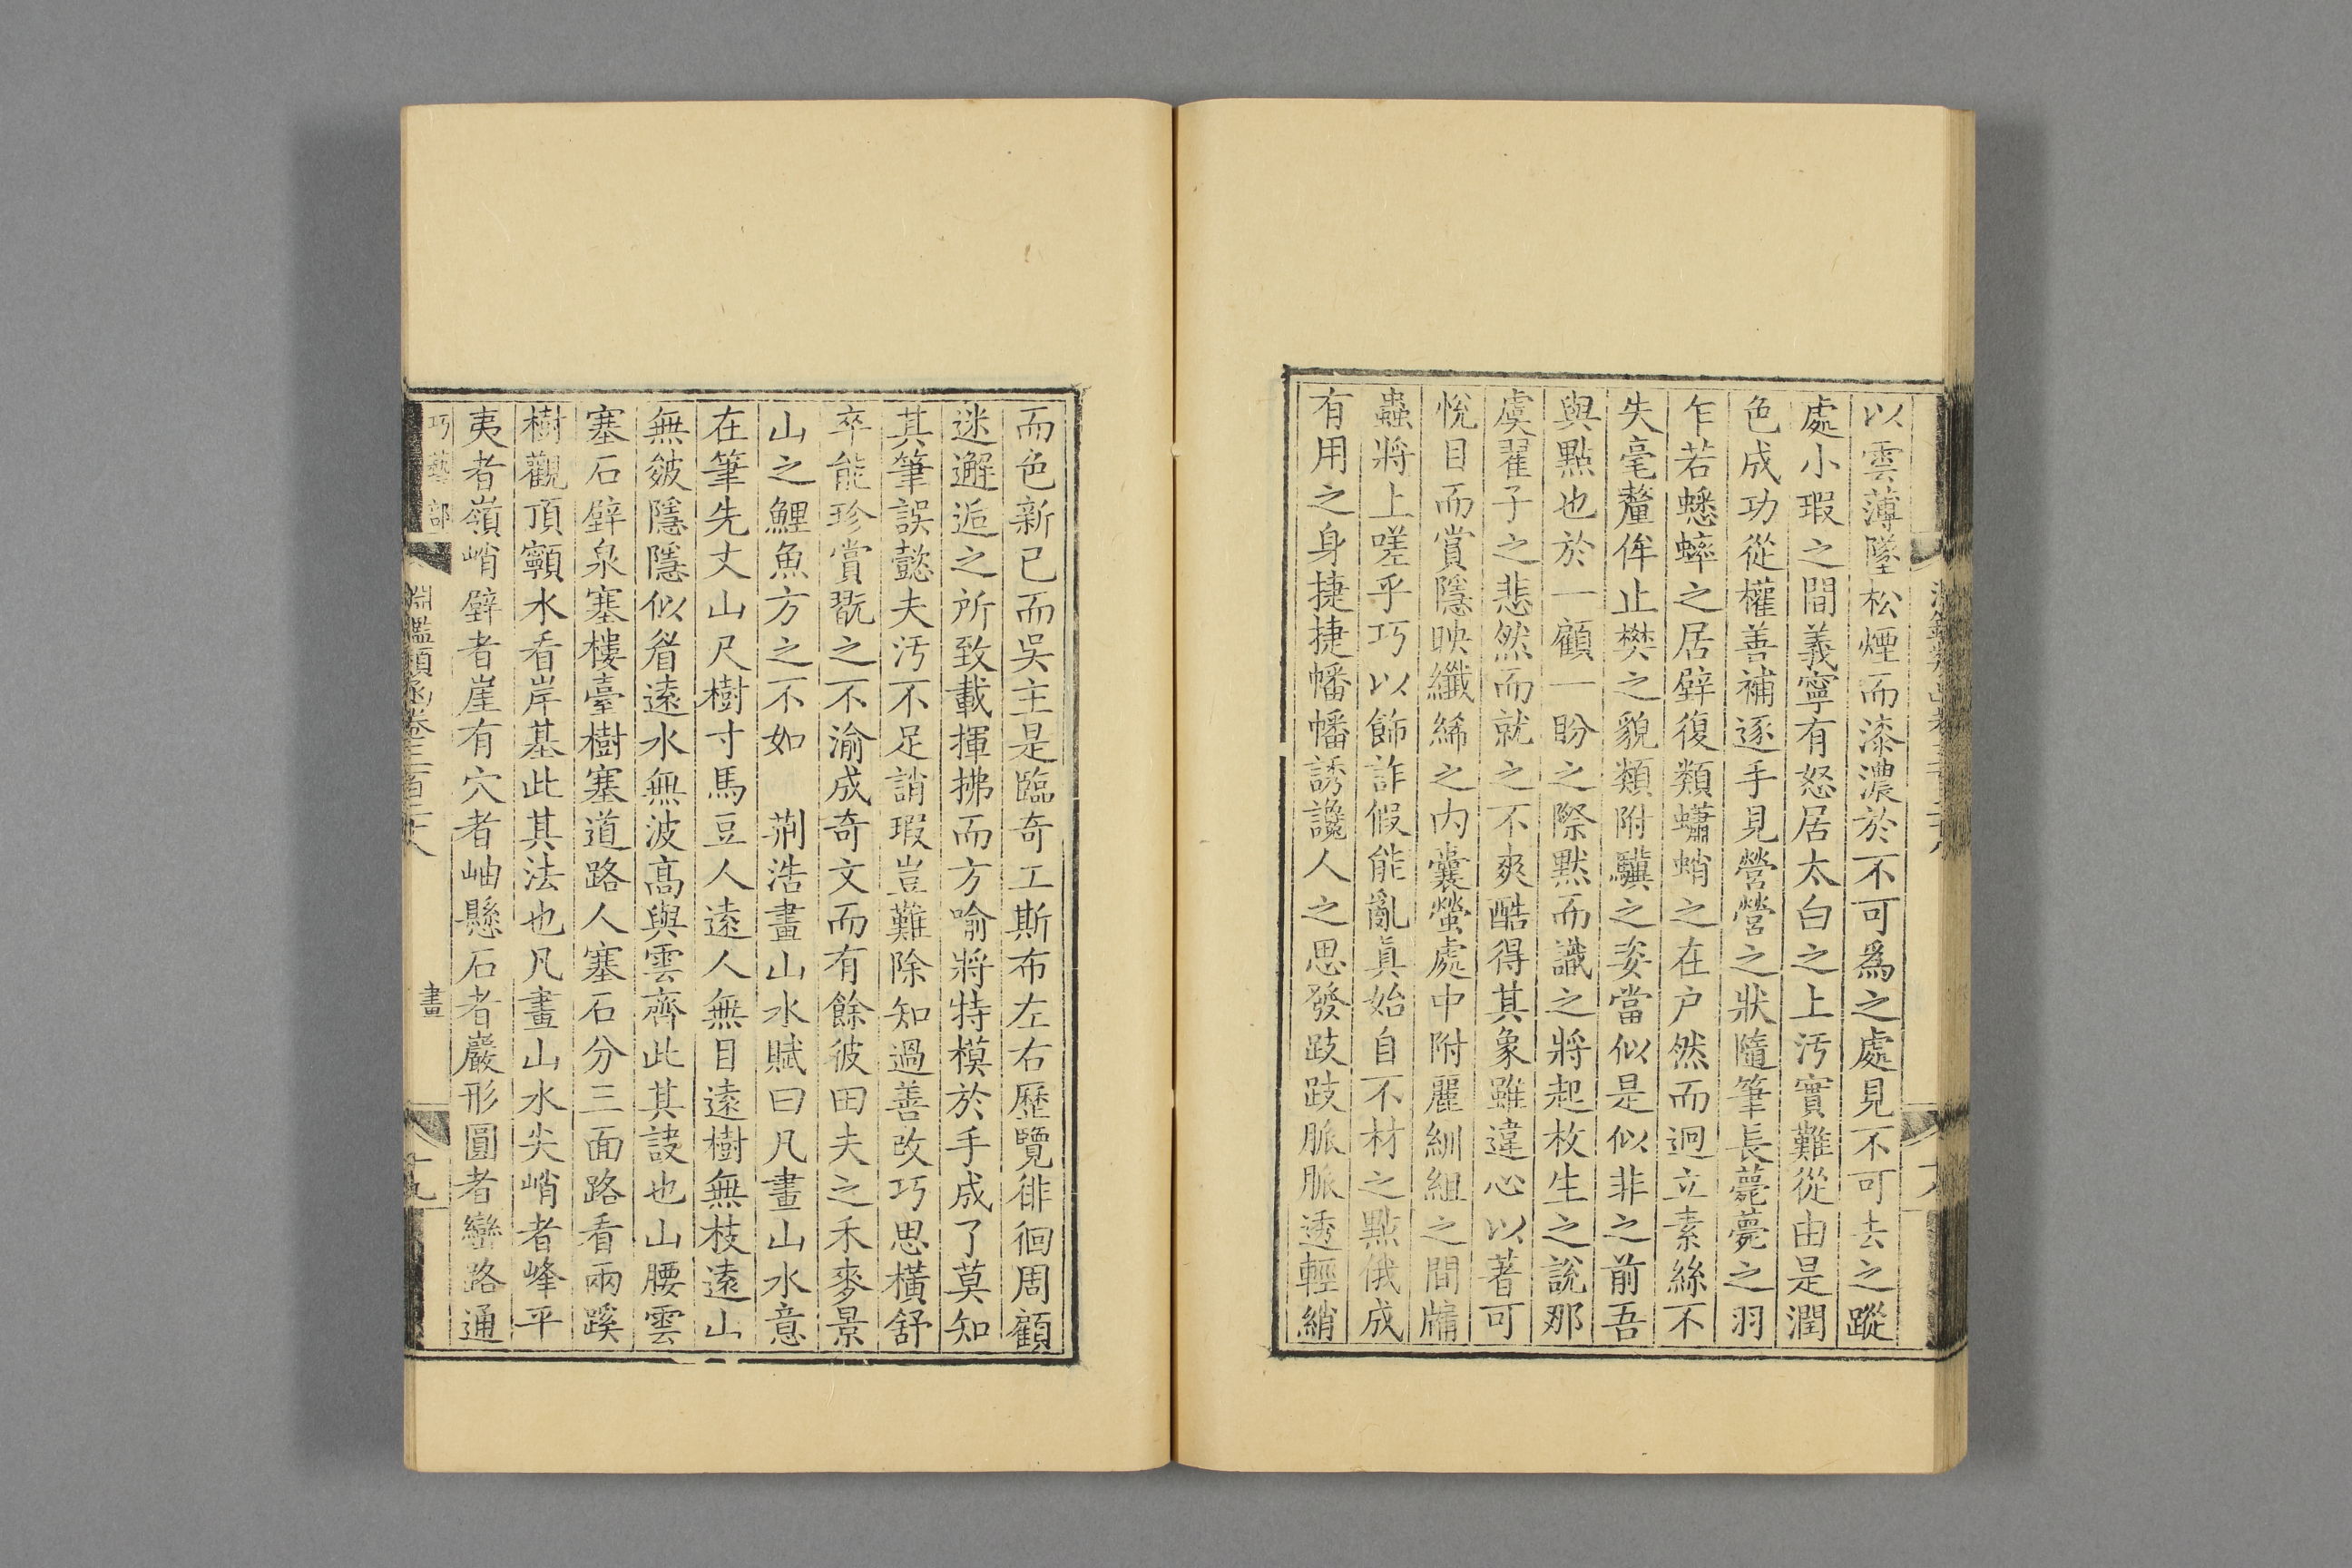 以雲薄墜松煙而漆濃於不可爲之處見不可去之蹤
處小瑕之間義寧有怒居太白之上汚實難從由是潤
色成功從權善補逐手見營營之狀隨筆長薨薨之羽
乍若蟋蟀之居壁復類蠨蛸之在户然而迥立素絲不
失毫釐侔止樊之貌類附驥之姿當似是似非之前吾
與點也於一顧一盼之際默而識之將起枚生之說那
虞翟子之悲然而就之不爽酷得其象雖違心以著可
悅目而賞隱映纖絺之内囊螢處中附麗紃組之間牗
蟲將上嗟乎巧以飾詐假能亂眞始自不材之點俄成
有用之身捷捷幡幡誘讒人之思發跂跂脈脈透輕綃
而色新已而吳主是臨奇工斯布左右歷覽徘徊周顧
迷邂逅之所致載揮拂而方喻將特模於手成了莫知
其筆誤懿夫汚不足誚瑕豈難除知過善改巧思橫舒
卒能珍賞翫之不渝成奇文而有餘彼田夫之禾麥景
山之鯉魚方之不如　荆浩畫山水賦曰凡畫山水意
在筆先丈山尺樹寸馬豆人遠人無目遠樹無枝遠山
無皴隱隱似眉遠水無波高與雲齊此其訣也山腰雲
塞石壁泉塞樓臺樹塞道路人塞石分三面路看兩蹊
樹觀頂𩕳水看岸基此其法也凡畫山水尖峭者峰平
夷者嶺峭壁者崖有穴者岫懸石者巖形圓者巒路通
巧藝部　淵鑑類函卷三百二十八　畫　十九